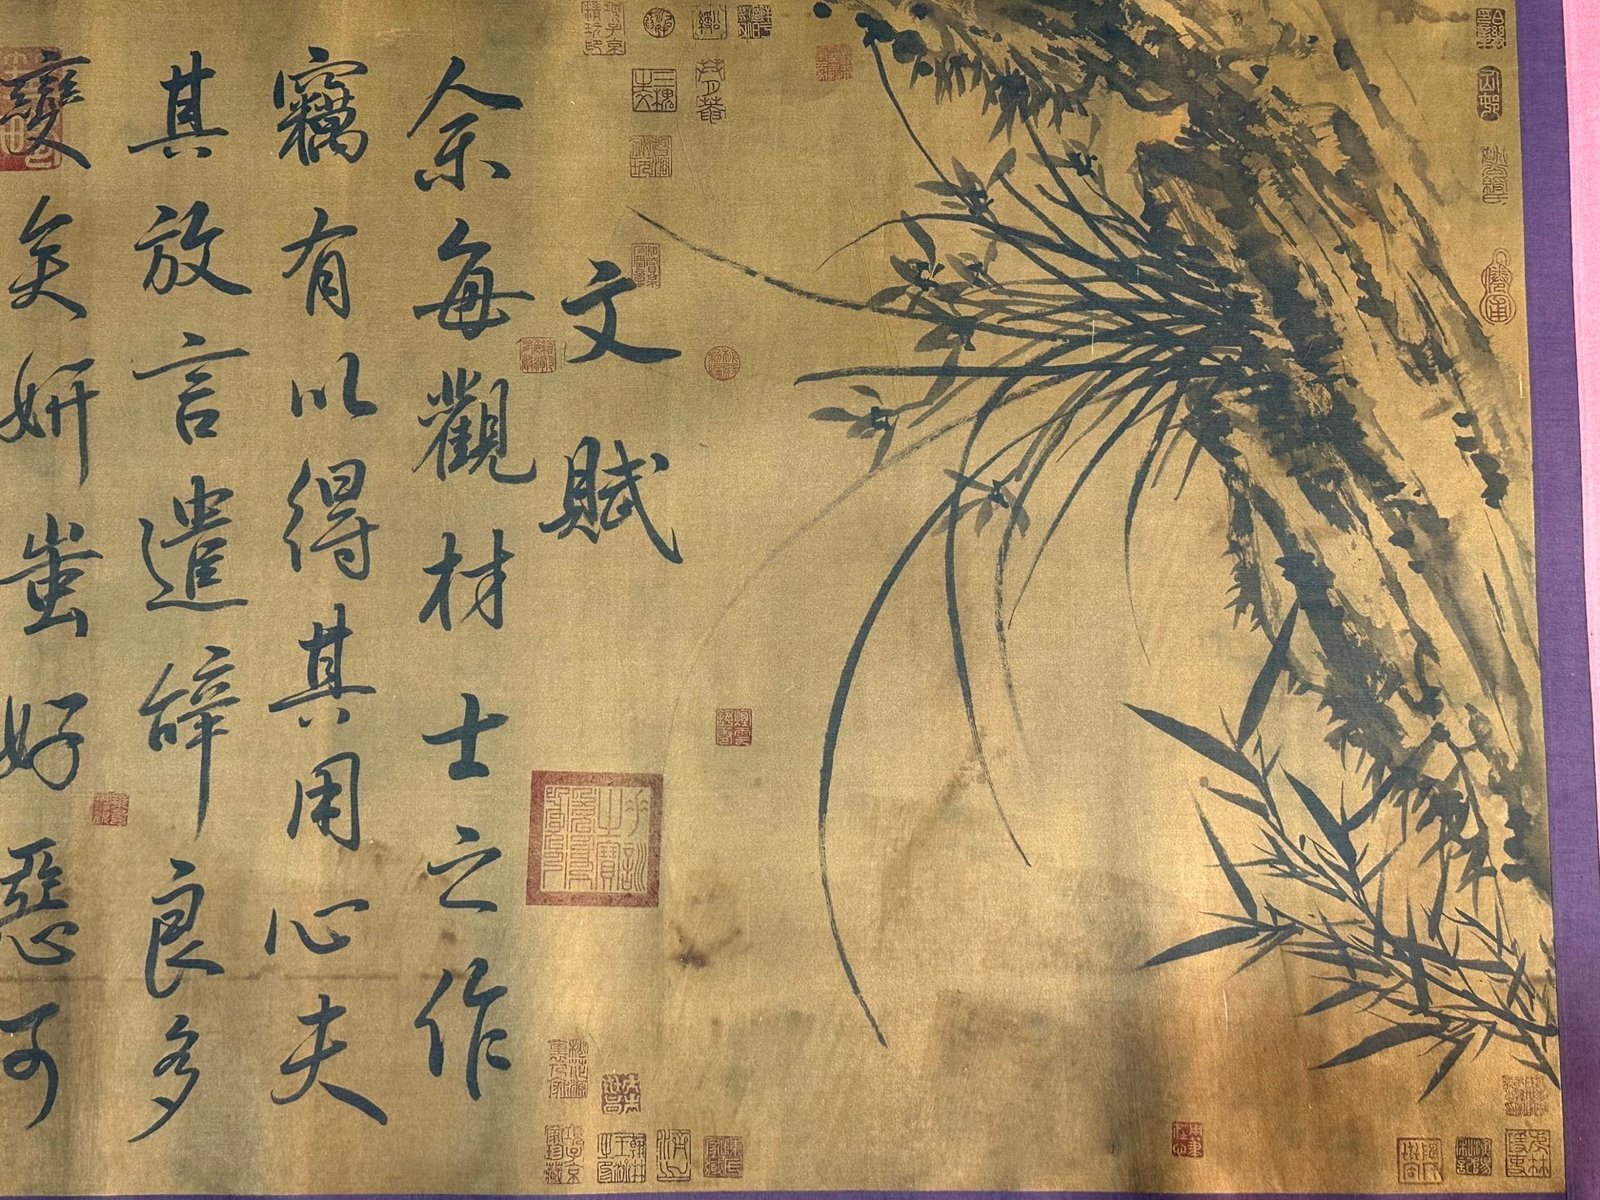 文賦
余每觀材士之作
竊有以得其用心夫
其放言遣辤良多
變矣妍蚩好惡可